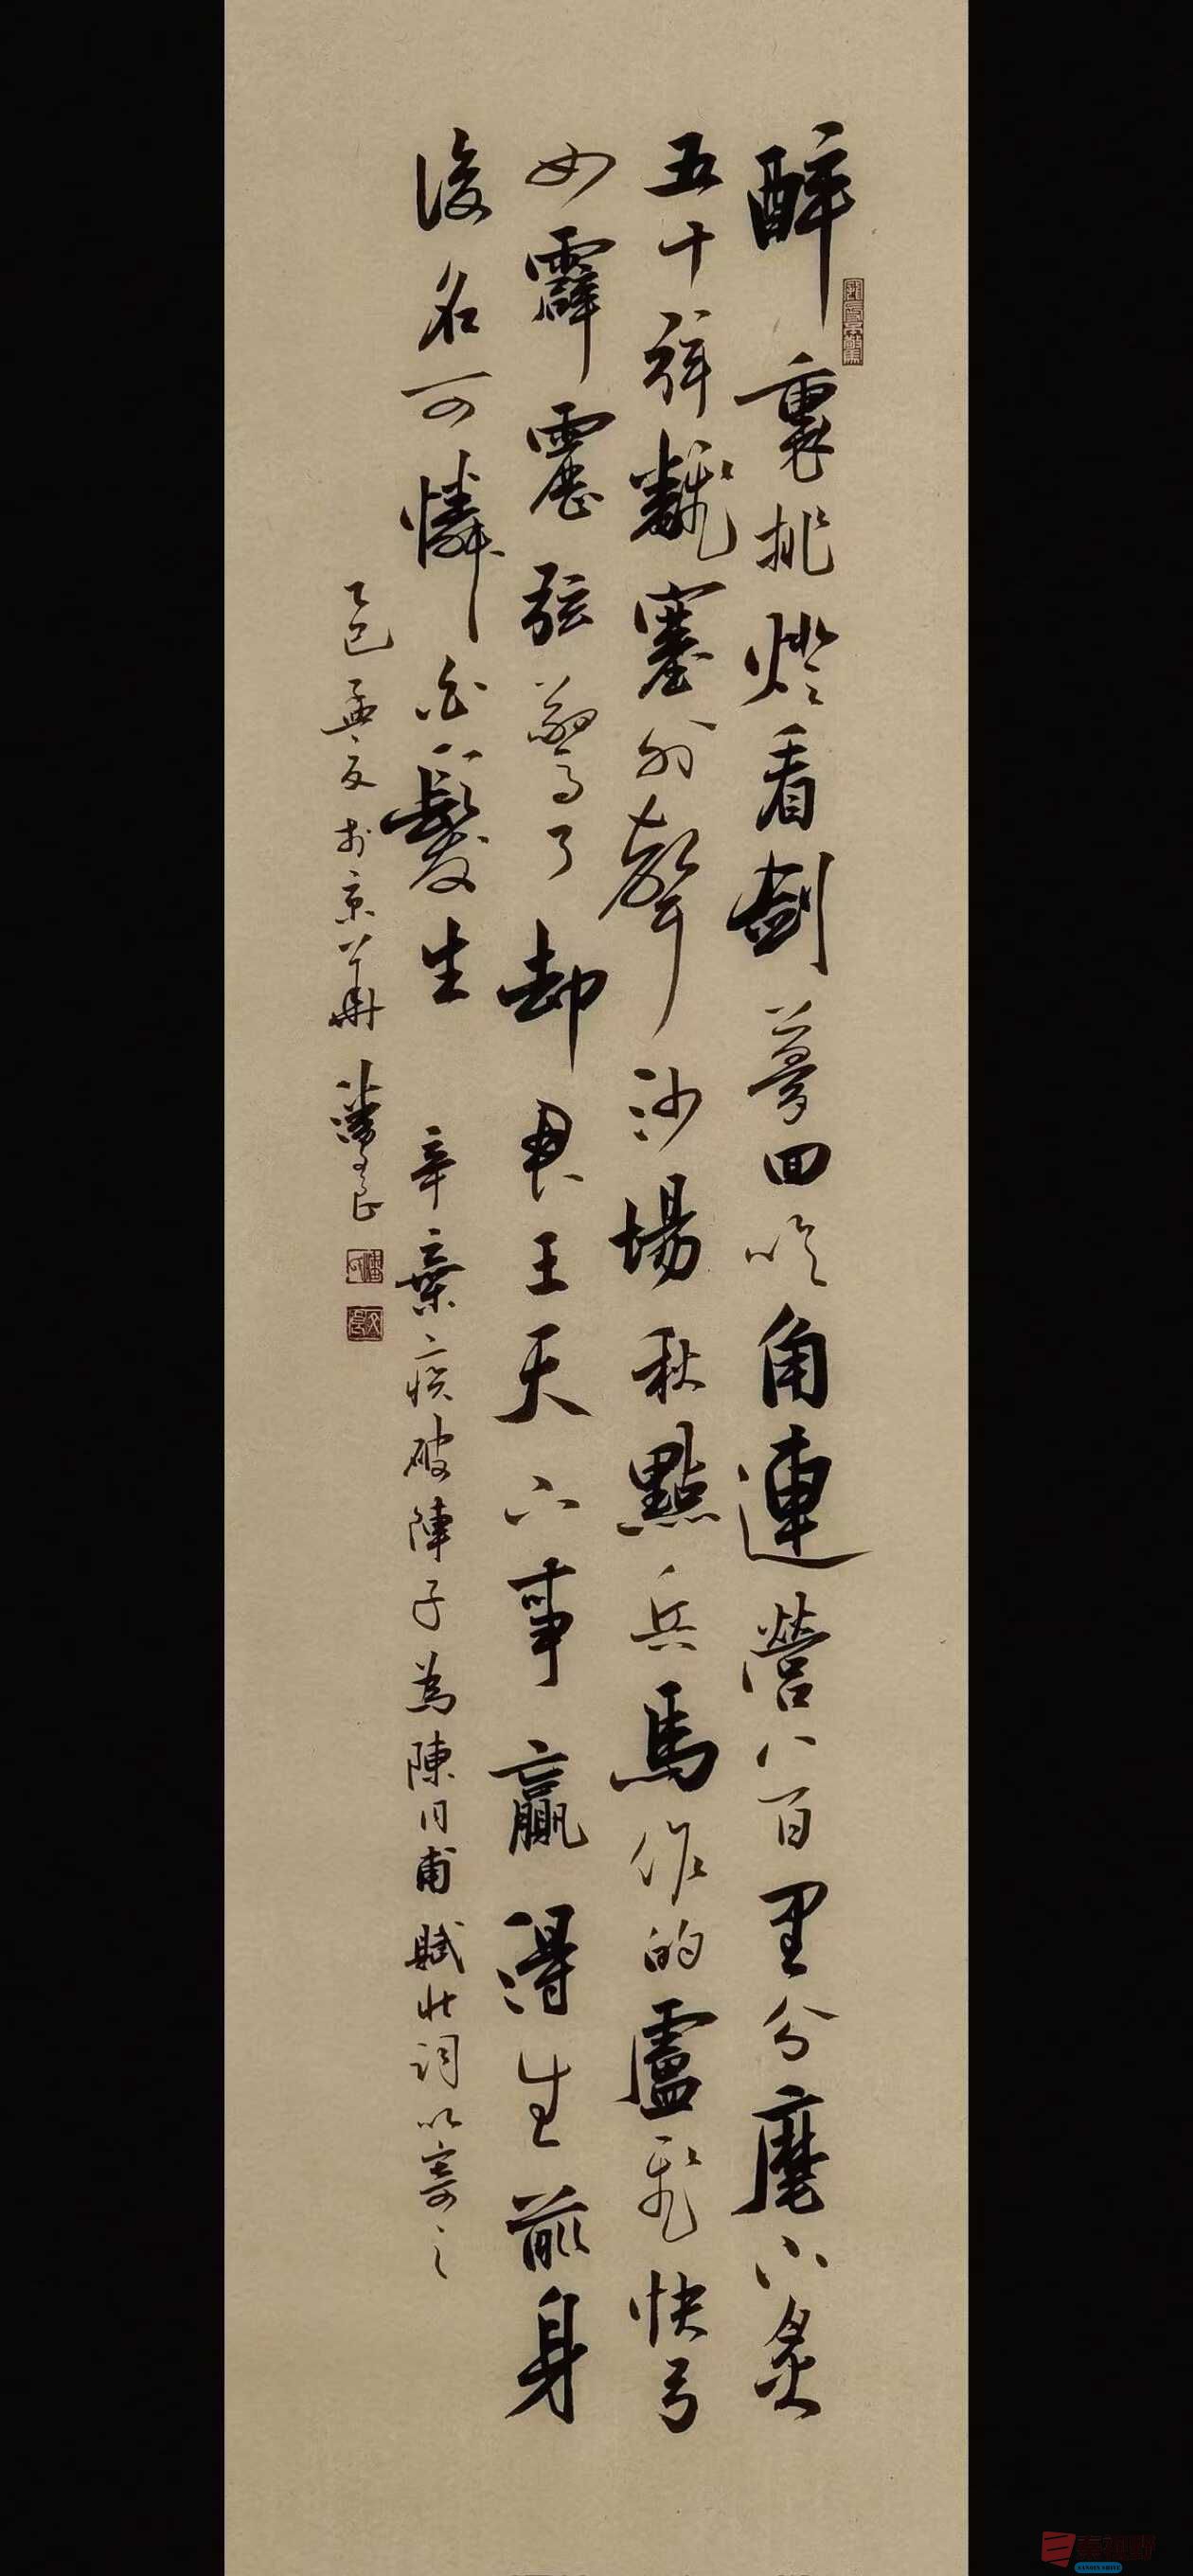 醉裏挑燈看劍夢回吹角連營八百里分麾下炙
五十弦飜塞外聲沙場秋點兵馬作的盧飛快弓
如霹靂弦驚了却君王天下事贏得生前身
後名可憐白髮生 辛棄疾破陣子為陳同甫賦壯詞以寄之
乙巳孟夏於京華 潘文良